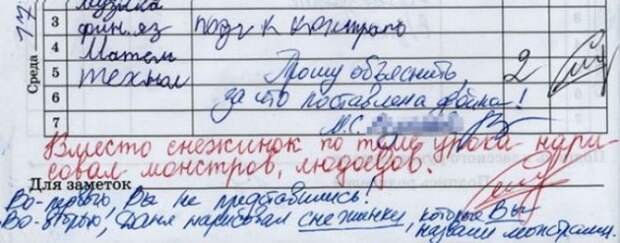 17
Среда
музыка
3 фин.яз подг к контраль
4 Матем
5 технол Прошу объяснить, 2
6 за что поставлена двойка!
7 М.С.
Вместо снежинок по теме урока нари
совал монстров, людоедов.
Для заметок
Во-первых, Вы не представились!
Во-вторых, Даня нарисовал снежинки, которые Вы
назвали монстрами.